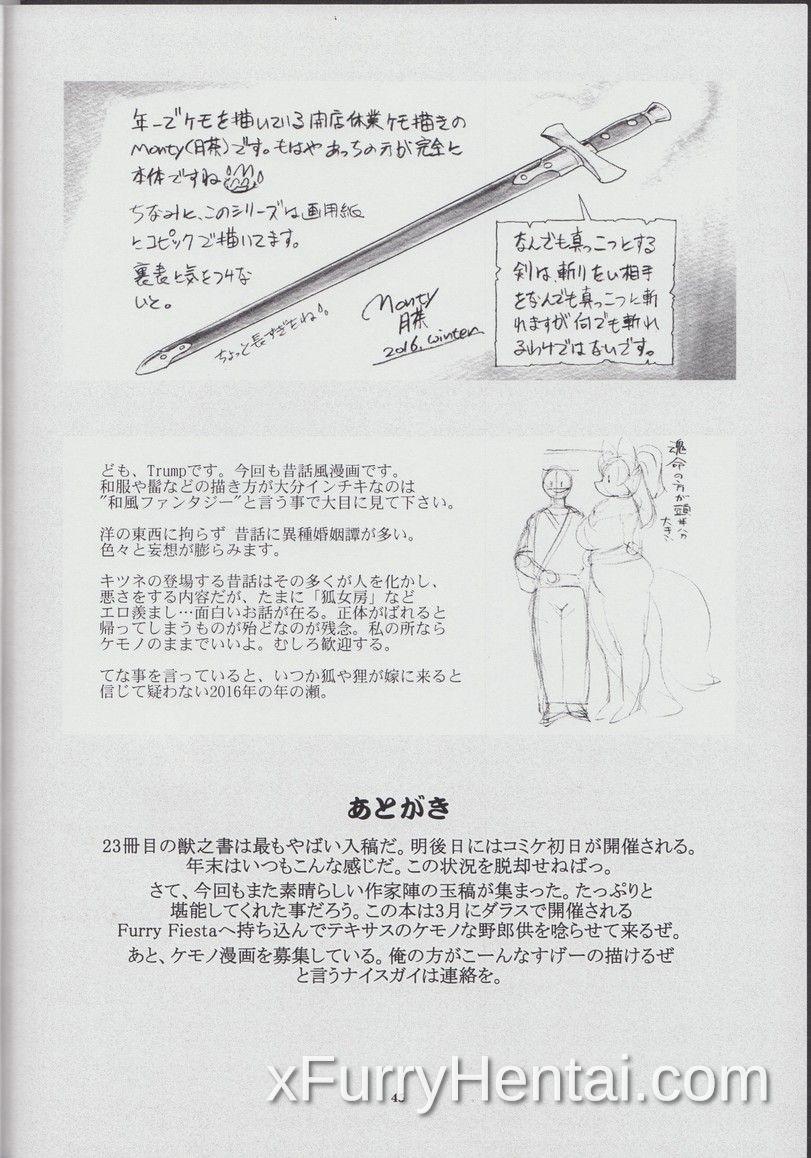 年一でケモを描いている開店休業ケモ描きの
Monty(月茶)です。もはやあっちの方が完全に
本体ですね
ちなみに、このシリーズは画用紙
とコピックで描いてます。
裏表に気をつけな
いと。
ちょっと長すぎたね。
Monty
月茶
2016. winter
なんでも真っこつにする
剣は、斬りたい相手
をなんでも真っこつに斬
れますが何でも斬れ
るわけではないです。
ども、Trumpです。今回も昔話風漫画です。
和服や髷などの描き方が大分インチキなのは
"和風ファンタジー"と言う事で大目に見て下さい。
洋の東西に拘らず 昔話に異種婚姻譚が多い。
色々と妄想が膨らみます。
キツネの登場する昔話はその多くが人を化かし、
悪さをする内容だが、たまに「狐女房」など
エロ羨まし…面白いお話が在る。正体がばれると
帰ってしまうものが殆どなのが残念。私の所なら
ケモノのままでいいよ。むしろ歓迎する。
てな事を言っていると、いつか狐や狸が嫁に来ると
信じて疑わない2016年の年の瀬。
魂命の方が頭半分
大きい
あとがき
23冊目の獣之書は最もやばい入稿だ。明後日にはコミケ初日が開催される。
年末はいつもこんな感じだ。この状況を脱却せねばっ。
さて、今回もまた素晴らしい作家陣の玉稿が集まった。たっぷりと
堪能してくれた事だろう。この本は3月にダラスで開催される
Furry Fiestaへ持ち込んでテキサスのケモノな野郎供を唸らせて来るぜ。
あと、ケモノ漫画を募集している。俺の方がこーんなすげーの描けるぜ
と言うナイスガイは連絡を。
xFurryHentai.com